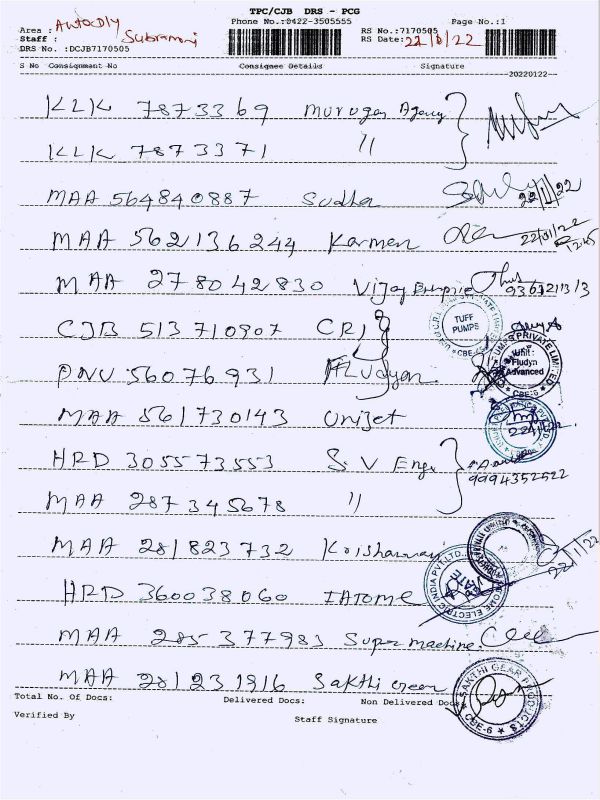 TPC/CJB DRS - PCG
Phone No.:0422-3505555 Page No.:1
Area : AutoDly RS No.:7170505
Staff : Subramani RS Date: 22/1/22
DRS No. :DCJB7170505
S No Consignment No Consignee Details Signature
20220122
KLK 7873369 Murugan Agency
KLK 7873371 "
MAA 564840887 Sudha 22/1/22
MAA 562136244 Karmen 22/01/22 12.45
MAA 278042830 Vijay
CJB 513710907 CRI TUFF PUMPS CBE
PNU 56076931 Fludyn Unit: Fludyn Advanced CBE-6
MAA 561730143 Unijet
HRD 3055573553 S.V Engg 9994352522
MAA 287345678 "
MAA 281823732 22/1/22
HRD 360038060 IATOME
MAA 285377983 Super machine
MAA 281231916 Sakthi Gear SAKTHI GEAR PRODUCTS CBE-6
Total No. Of Docs: Delivered Docs: Non Delivered Docs
Verified By Staff Signature